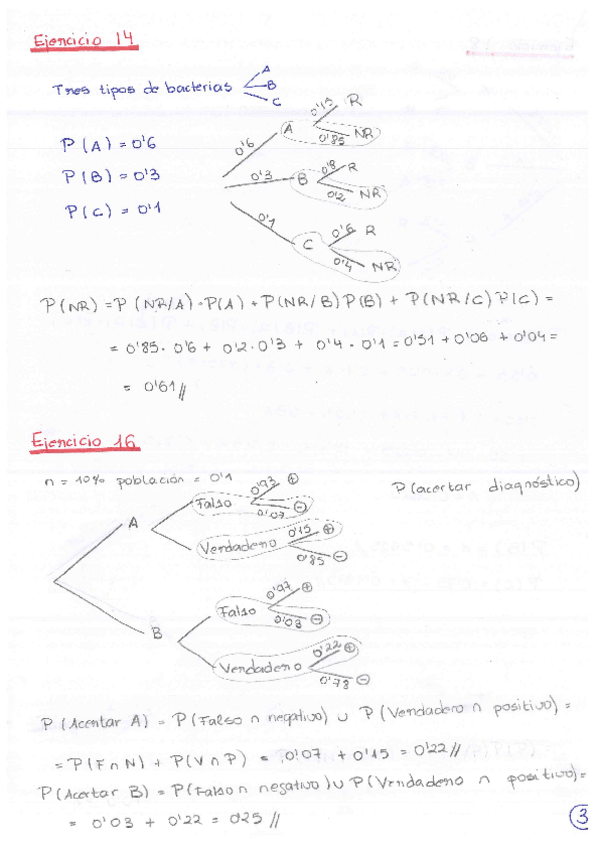 Ejercicio 14
Tres tipos de bacterias A
B
C
P(A) = 0'6
P(B) = 0'3
P(C) = 0'1
0'6 A 0'15 R
0'85 NR
0'3 B 0'8 R
0'2 NR
0'1 C 0'6 R
0'4 NR
P(NR) = P(NR/A)·P(A) + P(NR/B)P(B) + P(NR/C)P(C) =
= 0'85·0'6 + 0'2·0'3 + 0'4·0'1 = 0'51 + 0'06 + 0'04 =
= 0'61//
Ejercicio 16
n = 10% población = 0'1
P(acertar diagnóstico)
A Falso 0'93 +
0'07 -
Verdadero 0'15 +
0'85 -
B Falso 0'97 +
0'03 -
Verdadero 0'22 +
0'78 -
P(Acertar A) = P(Falso n negativo) u P(Verdadero n positivo) =
= P(F n N) + P(V n P) = 0'07 + 0'15 = 0'22//
P(Acertar B) = P(Falso n negativo) u P(Verdadero n positivo) =
= 0'03 + 0'22 = 025 //
3